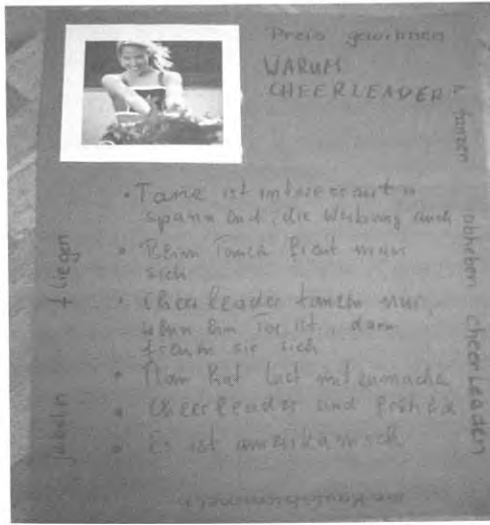 Preis gewinnen
WARUM
CHEERLEADER?
• Tanz ist interessant u
spannend, die Werbung auch
• Beim Tanzen freut man
sich
• Cheerleader tanzen nur,
wenn ein Tor ist, dann
freuen sie sich
• Man hat Lust mitzumachen
• Cheerleader sind fröhlich
• Es ist amerikanisch
tanzen
abheben
cheerleaden
fliegen
jubeln